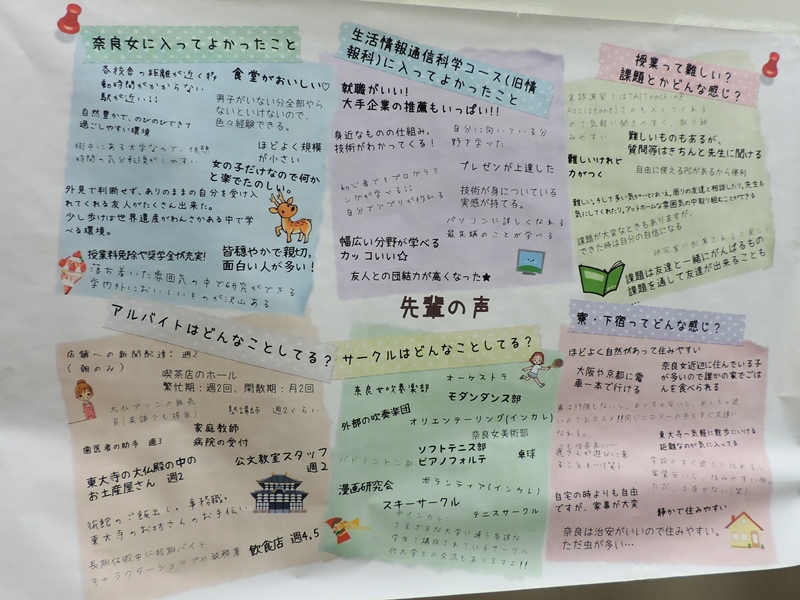 奈良女に入ってよかったこと
各校舎の距離が近く移
動時間がかからない
駅が近い!!
食堂がおいしい♡
男子がいない分全部やら
ないといけないので、
色々経験できる。
自然豊かで、のびのびできて
過ごしやすい環境
ほどよく規模
が小さい
街中にある大学なので、休憩
時間の気分転換がしやすい
女の子だけなので何か
と楽でたのしい。
外見で判断せず、ありのままの自分を受け入
れてくれる友人がたくさん出来た。
少し歩けば世界遺産がわんさかある中で学
べる環境。
授業料免除や奨学金が充実!
皆穏やかで親切,
面白い人が多い!
落ち着いた雰囲気の中で研究ができる
学内外においしいものが沢山ある
生活情報通信科学コース(旧情
報科)に入ってよかったこと
就職がいい!
大手企業の推薦もいっぱい!!
身近なものの仕組み,
技術がわかってくる!
自分に向いている分
野を学べた
プレゼンが上達した
初心者でもプログラミ
ングが学べる!!
自分でアプリが作れる
技術が身についている
実感が持てる。
パソコンに詳しくなれる
最先端のことが学べる
幅広い分野が学べる
カッコいい☆
友人との団結力が高くなった★
授業って難しい?
課題とかどんな感じ?
実践演習ではTA(Teaching
Assistant)さんも入ってくれる
ので気軽に聞きやすく、取り組
みやすい
難しいものもあるが、
質問等はきちんと先生に聞ける
難しいけれど
力がつく
自由に使えるPCがあるから便利
難しい。そして多い気が…とはいえ、周りの友達と相談したり、先生も
気にしてくれたり。アットホームな雰囲気の中取り組むことができる
課題が大変なときもありますが、
できた時は自分の自信になる
課題は友達と一緒にがんばるもの
課題を通して友達が出来ることも
…
先輩の声
アルバイトはどんなことしてる?
店舗への新聞配達:週2
(朝のみ)
喫茶店のホール
繁忙期:週2回、閑散期:月2回
大仏プリンの販売
員(英語でも接客)
塾講師 週2くらい
家庭教師
病院の受付
歯医者の助手 週3
東大寺の大仏殿の中の
お土産屋さん 週2
公文教室スタッフ
週2
旅館のご飯出し、事務職、
東大寺のお坊さんのお手伝い
飲食店 週4,5
長期休暇中に短期バイト
キャラクターショップや税務署
サークルはどんなことしてる?
オーケストラ
奈良女吹奏楽部
モダンダンス部
外部の吹奏楽団
オリエンテーリング(インカレ)
奈良女美術部
ソフトテニス部
バドミントン部
ピアノフォルテ
卓球
漫画研究会
ボランティア(インカレ)
スキーサークル
テニスサークル
インカレ:
さまざまな大学に通う普通な
学生で構成されているサークル
他大学との交流もありますよ!!
寮・下宿ってどんな感じ?
ほどよく自然があって住みやすい
大阪や京都に電
車一本で行ける
奈良女近辺に住んでいる子
が多いので誰かの家でごは
んを食べられる
東大寺へ気軽に散歩にいける
距離なのが気に入ってる
自宅の時よりも自由
ですが、家事が大変
静かで住みやすい
奈良は治安がいいので住みやすい。
ただ虫が多い…